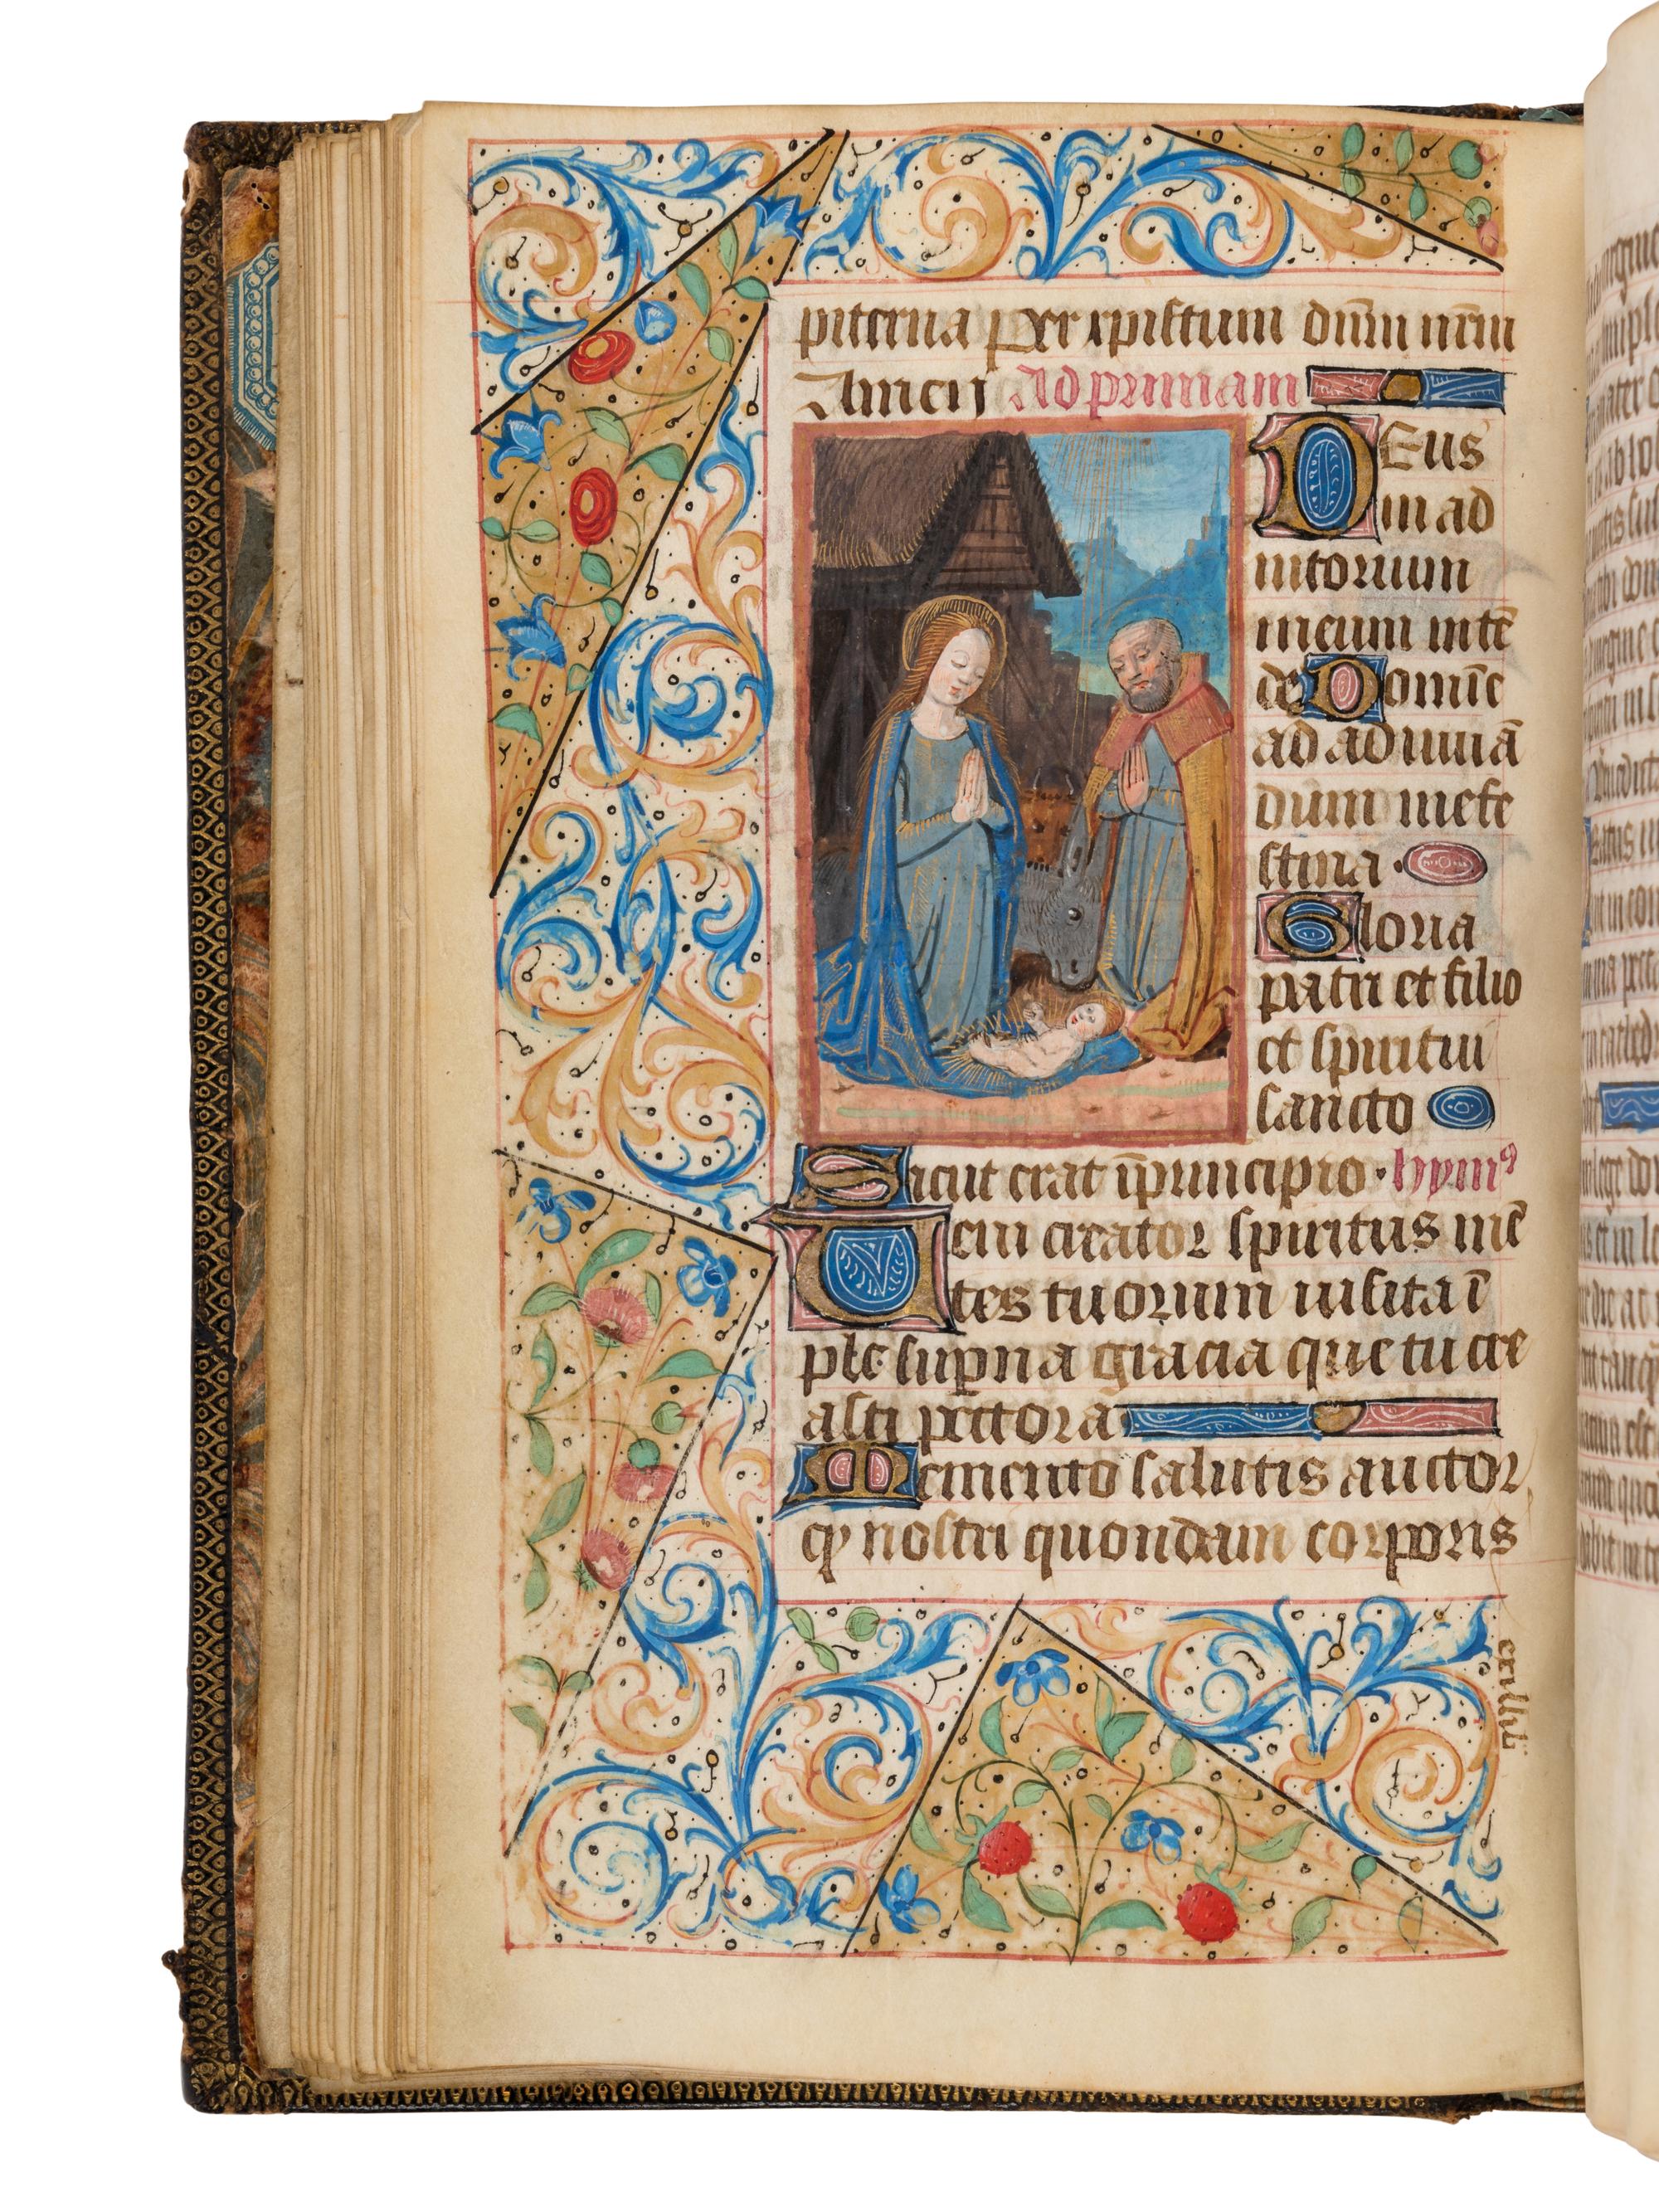 piterna per xpistum dn̄m nr̄m
Amen Ad primam
DEus
in ad
iutorium
meum intē
de Domīe
ad adiuuā
dum me fe
stina ·
Gloria
patri et filio
et spiritui
sancto
Sicut erat ī principio · hymꝰ
Veni creator spiritus mē
tes tuorum uisita ī
ple suꝑna gracia que tu cre
asti pectora
Memento salutis auctor
ꝙ nostri quondam corporis